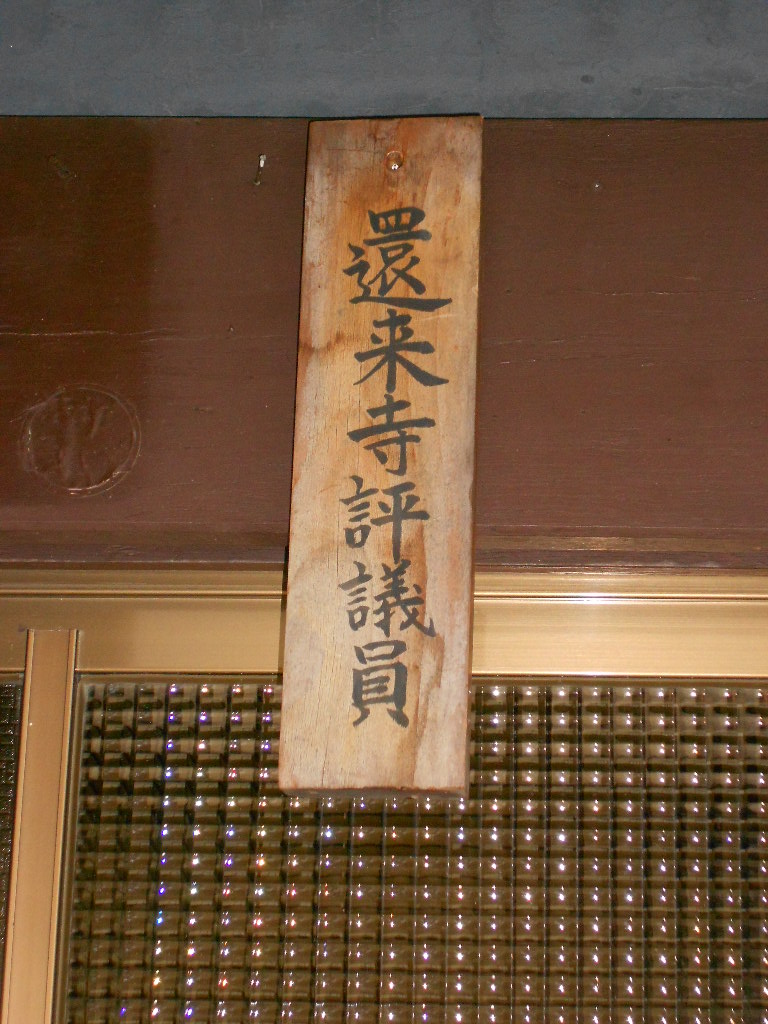 還来寺評議員